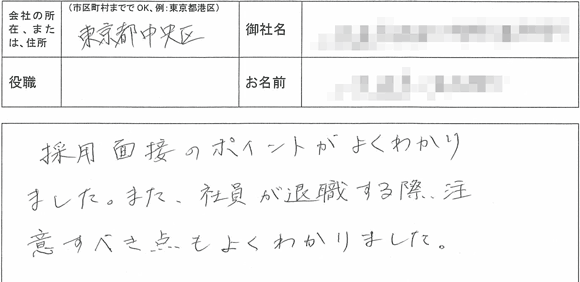 会社の所在、または、住所
（市区町村まででOK、例：東京都港区）
東京都中央区
御社名
役職
お名前
採用面接のポイントがよくわかり
ました。また、社員が退職する際、注
意すべき点もよくわかりました。